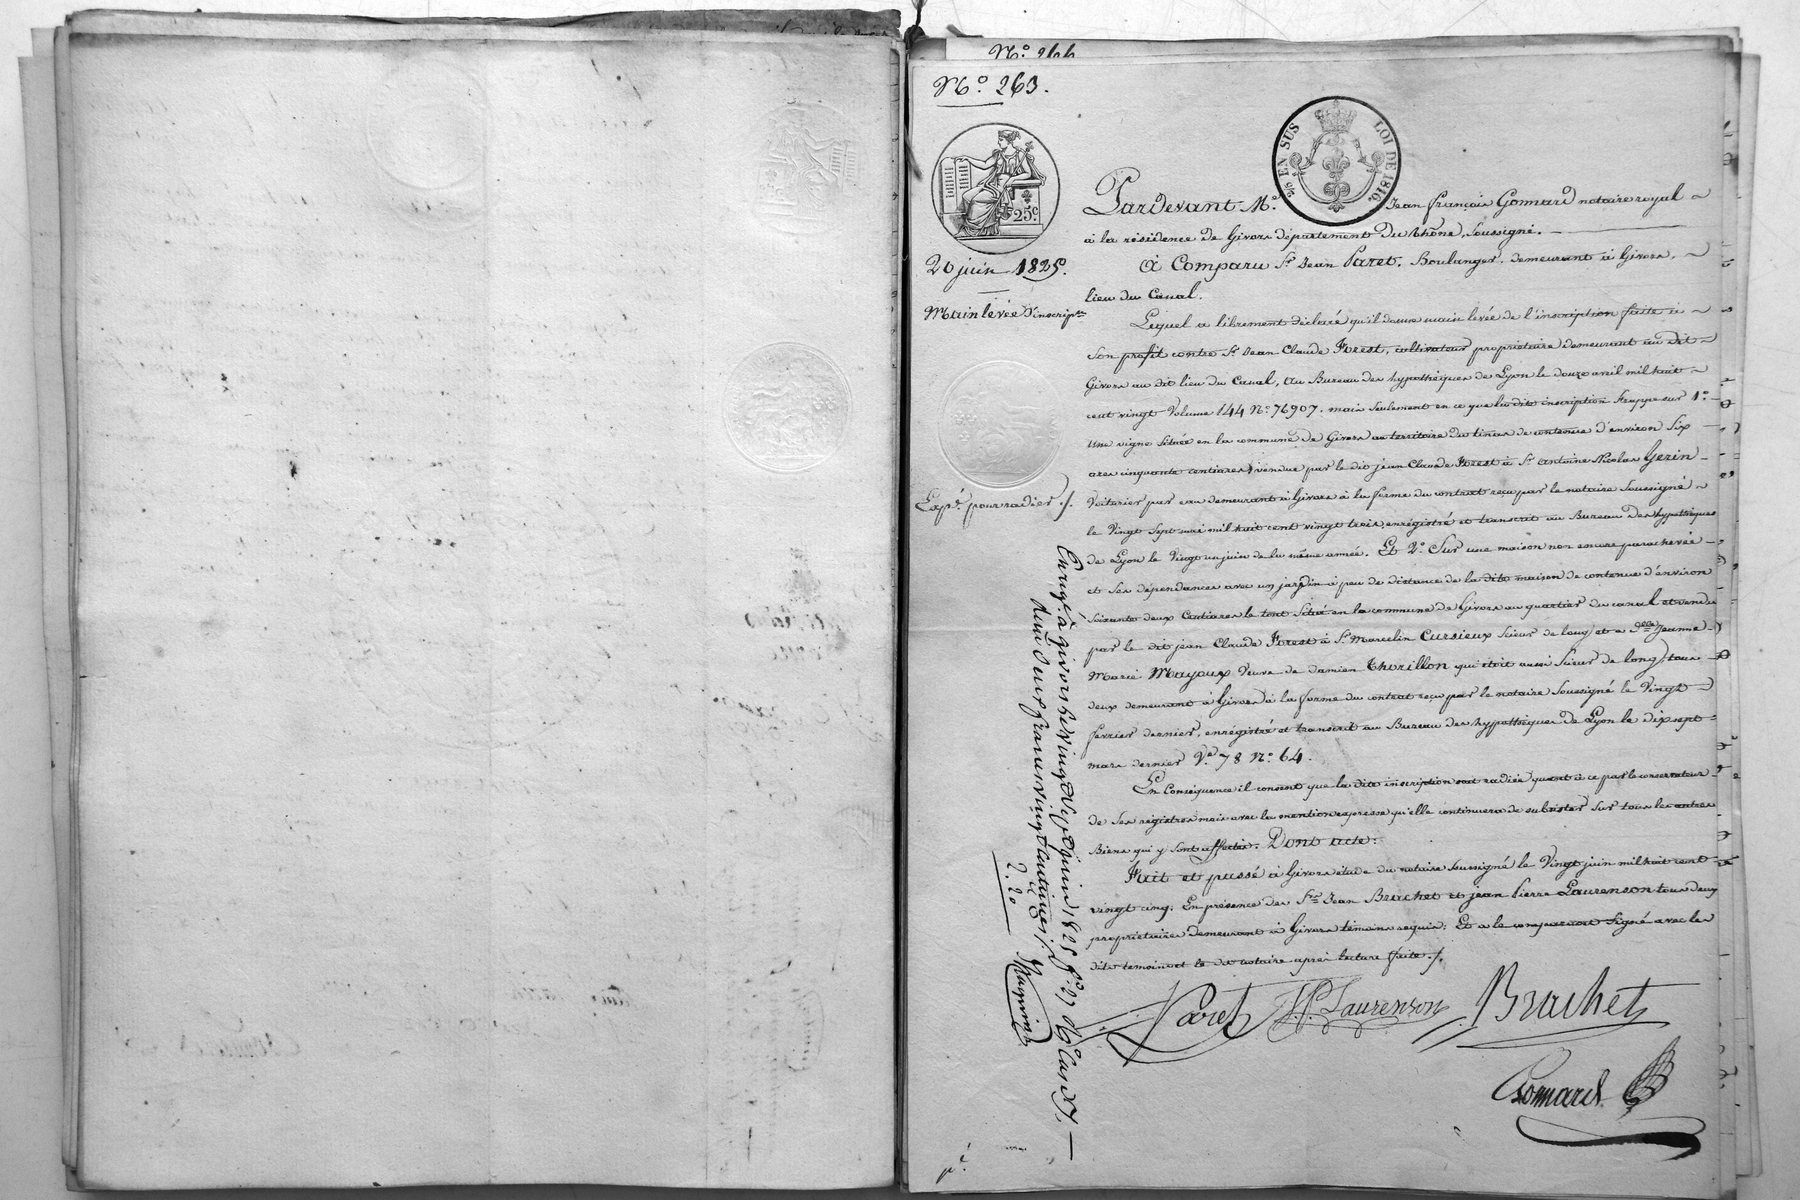 N.º 266
N.º 263.
2/6 EN SUS LOI DE 1816.
25c.
20 juin 1825.
Mainlevée d'inscripon
Expé. pour radier ./.
Pardevant M.e Jean françois Gonnard notaire royal
à la résidence de Givors département du Rhône, Soussigné.
A Comparu Sr. Jean Paret, Boulanger, demeurant à Givors,
lieu du Canal.
Lequel a librement déclaré qu'il donne main levée de l'inscription faite à
Son profit contre Sr. Jean Claude Forest, cultivateur propriétaire demeurant au dit
Givors au dit lieu du Canal, au Bureau des hypothèques de Lyon le douze avril mil huit
cent vingt Volume 144 N.º 76907. mais seulement en ce que la dite inscription frappe sur 1.º
Une vigne située en la commune de Givors au territoire du de contenue d'environ Six
ares cinquante centiares, vendue par le dit jean Claude Forest à Sr. Antoine Nicolas Gerin
Voiturier par eau demeurant à Givors à la forme du contrat reçu par le notaire Soussigné
le Vingt Sept mai mil huit cent vingt trois, enrégistré et transcrit au Bureau des hypothèques
de Lyon le Vingt un juin de la même année. Et 2.º Sur une maison non encore parachevée
et Ses dépendances avec un jardin à peu de distance de la dite maison de contenue d'environ
Soixante deux Centiares le tout Situé en la commune de Givors au quartier du canal et vendu
par le dit jean Claude Forest à Sr. Marcelin Cursieux Scieur de long, et a Delle Jeanne
Marie Mayoux Veuve de damien Thorillon qui étoit aussi Scieur de long, tous
deux demeurant à Givors à la forme du contrat reçu par le notaire Soussigné le Vingt
février dernier, enrégistré et transcrit au Bureau des hypothèques de Lyon le dix sept
mars dernier V.e 78 N.º 64.
En Conséquence il consent que la dite inscription soit radiée quant à ce par le conservateur
de Ses régistres mais avec la mention expresse qu'elle continuera de subsister Sur tous les autres
Biens qui y Sont affectés. Dont acte.
Fait et passé à Givors étude du notaire Soussigné le Vingt juin mil huit cent
vingt cinq. En présence des Srs. Jean Brachet et jean Pierre Laurenson tous deux
propriétaires demeurant à Givors témoins requis. Et a le comparant Signé avec les
dits témoins et le dit notaire après lecture faite ./.
Paret JP Laurenson Brachet
Gonnard
Enrgé. à Givors le vingt sept juin 1825 f.º 27 V.º
deux francs vingt centimes ./.
2.20